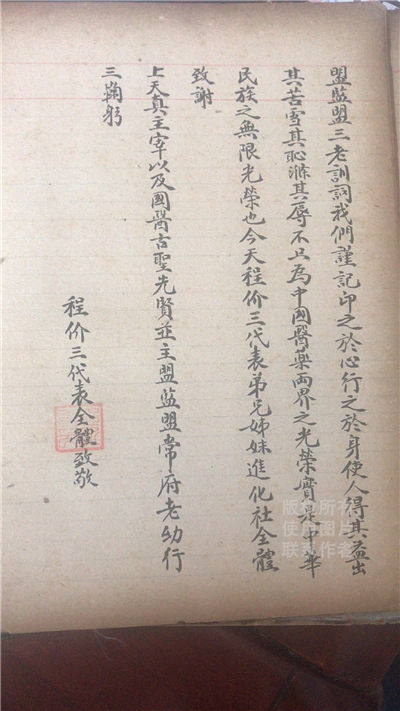 盟監盟三老訓詞我們謹記印之於心行之於身使人得其益出
其苦雪其恥滌其辱不只為中國醫藥兩界之光榮實是中華
民族之無限光榮也今天程价三代表弟兄姊妹進化社全體
致謝
上天真主宰以及國醫古聖先賢並主盟監盟常府老幼行
三鞠躬
程价三代表全體致敬
版权所有
使用图片
联系作者